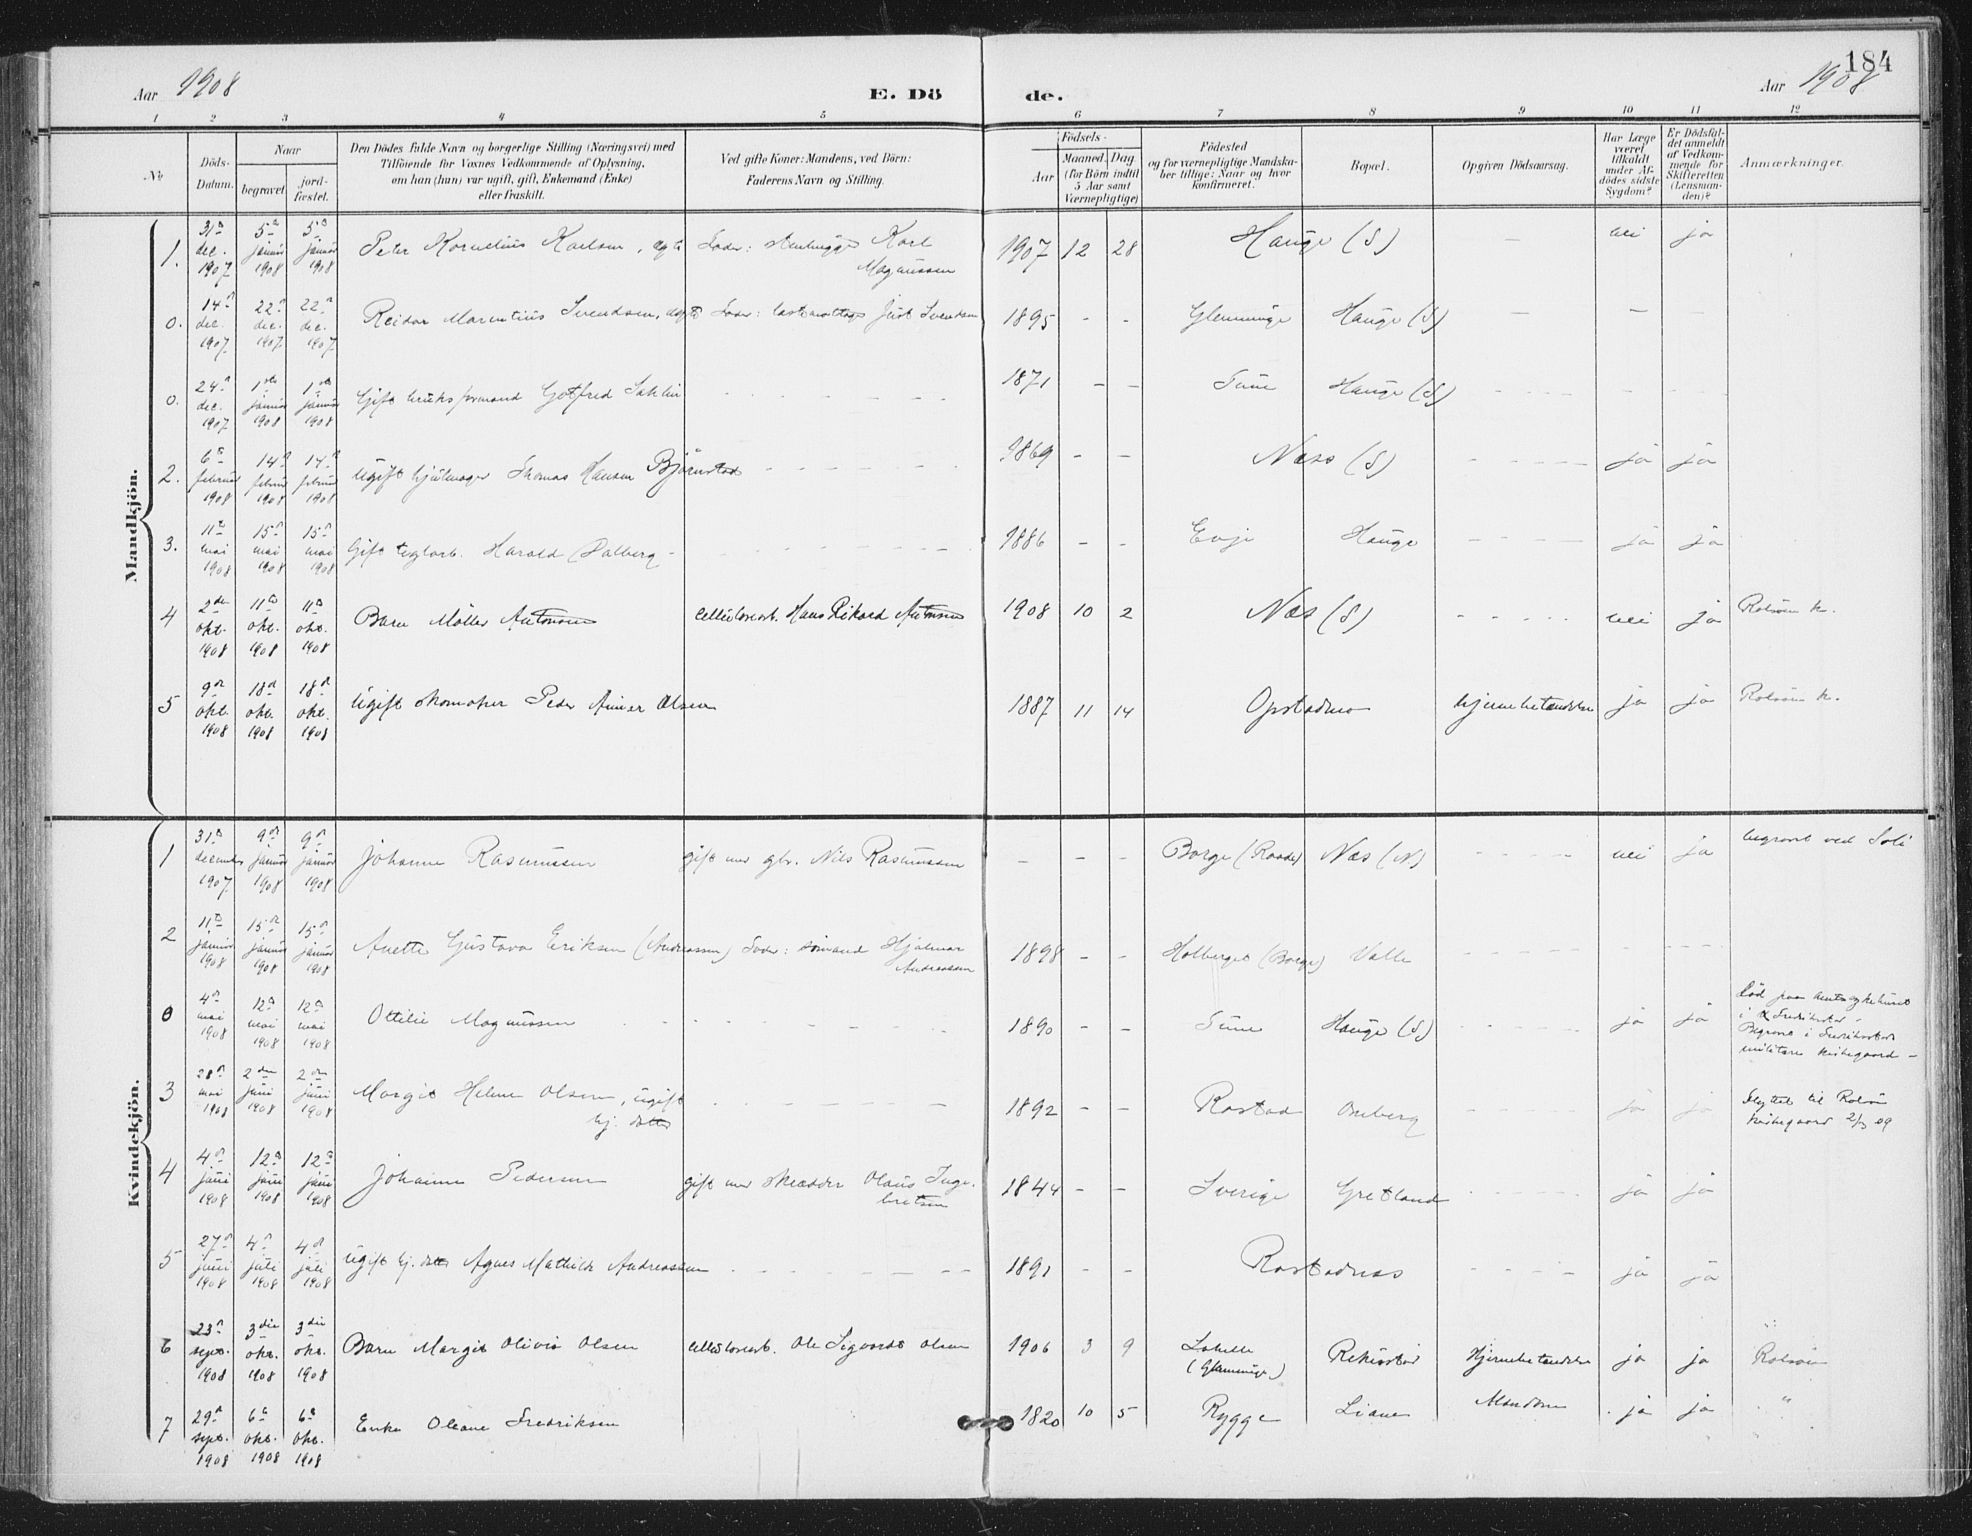 184
Aar 1908 E. Dö de. Aar 1908
1 2 3 4 5 6 7 8 9 10 11 12
No. Döds-Datum. Naar begravet. jordfæstet. Den Dödes fulde Navn og borgerlige Stilling (Næringsvei) med Tilföiende for Voxnes Vedkommende af Oplysning, om han (hun) var ugift, gift, Enkemand (Enke) eller fraskilt. Ved gifte Koner: Mandens, ved Börn: Faderens Navn og Stilling. Födsels- Aar Maaned. Dag. (for Börn indtil 5 Aar samt Værnepligtige) Födested og for værnepligtige Mandskaber tillige: Naar og hvor konfirmeret. Bopæl. Opgiven Dödsaarsag. Har Læge været tilkaldt under Afdödes sidste Sygdom? Er Dödsfaldet anmeldt af Vedkommende for Skifteretten (Lensmanden)? Anmærkninger.
Mandkjön.
1. 31 dec. 1907 5 januar 1908 5 januar 1908 Peter Kornelius Karlsen, Fader: Karl Magnussen 1907 12 28 Hauge (S) – nei ja
0. 14 dec. 1907 22 dec. 1907 22 dec. 1907 Reidar Marentius Svendsen, Fader: Just Svendsen 1895 - - Glemminge Hauge (S) – – –
0. 24 dec. 1907 1 januar 1908 1 januar 1908 Gift bruksformand Gotfred Sahlin 1871 - - Tune Hauge (S)
2. 6 februar 1908 14 februar 1908 14 februar 1908 Ugift hjulmager Thomas Hansen Björnstad 1869 - - Næss (S) ja ja
3. 11 mai 1908 15 mai 1908 15 mai 1908 Gift teglarb. Harald Dalberg 1886 - - Evje Hauge ja ja
4 2den okt. 1908 11 okt. 1908 11 okt. 1908 Barn Möller Antonsen cellulosearb. Hans Rikard Antonsen 1908 10 2 Næs (S) nei ja Rolvsöi k.
5 9 okt. 1908 18 okt. 1908 18 okt. 1908 Ugift skomaker Peder Olsen 1887 11 14 Opstadmo hjernebetændelse ja ja Rolvsöi k.
Kvindekjön.
1 31 december 1907 9 januar 1908 9 januar 1908 Johanne Rasmussen gift med gbr. Nils Rasmussen - - - Borge (Raade) Næs (N) nei ja begravet ved Soli
2 11 januar 1908 15 januar 1908 15 januar 1908 Anette Gustava Eriksen (Andreassen) Fader: sömand Hjalmar Andreassen 1898 - - Holberget (Borge) Valle
0 4 mai 1908 12 mai 1908 12 mai 1908 Ottilie Magnussen 1890 - - Tune Hauge (S) ja ja Död paa Amtssykehuset i Fredrikstad – Begravet i Fredrikstad militære kirkegaard –
3 28 mai 1908 2den juni 1908 2den juni 1908 Margit Helene Olsen, ugift hj. datter 1892 - - Rostad Omberg ja ja Flyttet til Rolvsöi kirkegaard 2/3 09
4 4 juni 1908 12 juni 1908 12 juni 1908 Johanne Pedersen gift med skrædder Olaus Ingebretsen 1844 - - Sverige Gretland ja ja
5 27 juni 1908 4 juli 1908 4 juli 1908 Ugift hj. datter Agnes Mathilde Andreassen 1891 - - Rostadnæs ja ja
6 23 sept. 1908 3die okt. 1908 3die okt. 1908 Barn Margit Olivia Olsen cellulosearb. Ole Sigvardt Olsen 1906 3 9 Labella (Glemminge) Rekustad Hjernebetændelse ja ja Rolvsöi
7 29 sept. 1908 6 okt. 1908 6 okt. 1908 Enke Oleane Fredriksen 1820 10 5 Rygge Liane Alderdom ja ja "